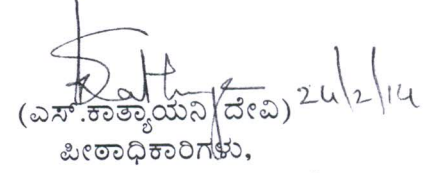 (ಎಸ್.ಕಾತ್ಯಾಯನಿ ದೇವಿ) 24/2/14
ಪೀಠಾಧಿಕಾರಿಗಳು,